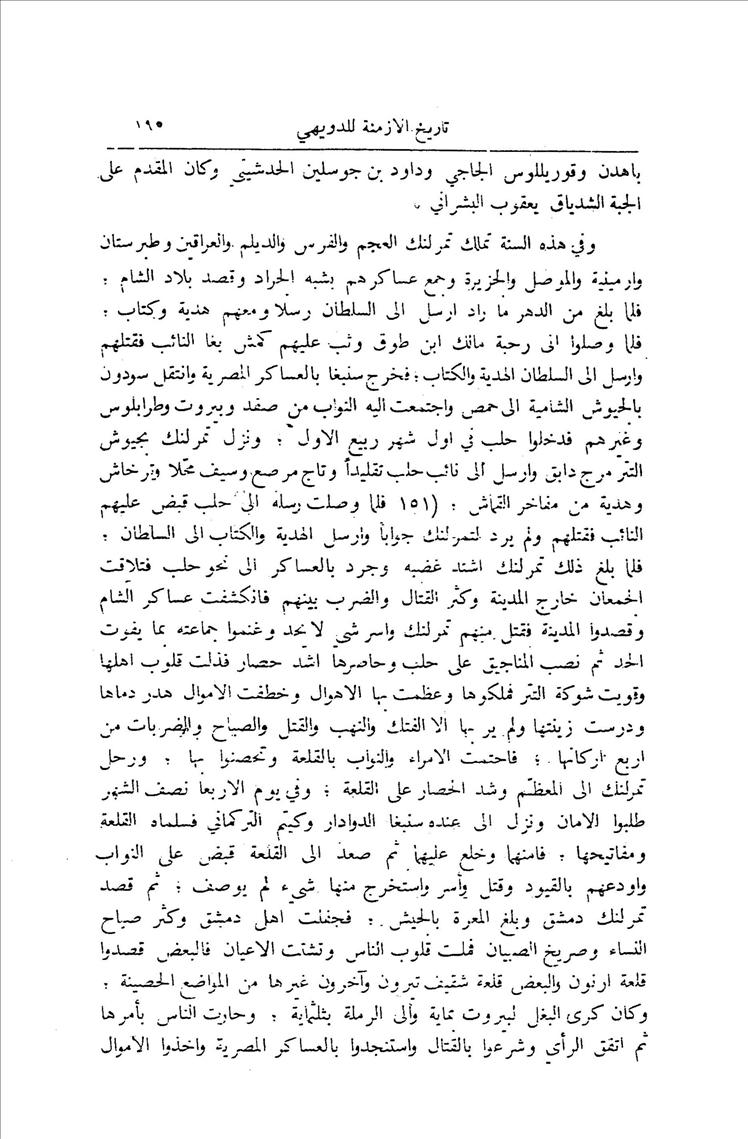 تاريخ الازمنة للدويهي ١٩٥
باهدن وقوريللوس الجاجي وداود بن جوسلين الحدشيتي وكان المقدم على
الجبة الشدياق يعقوب البشراني .
وفي هذه السنة تملك تمرلنك العجم والفرس والديلم والعراقين وطبرستان
وارمينية والموصل والجزيرة وجمع عساكرهم بشبه الجراد وقصد بلاد الشام :
فلما بلغ من الدهر ما راد ارسل الى السلطان رسلا ومعهم هدية وكتاب :
فلما وصلوا الى رحبة مالك ابن طوق وثب عليهم كمش بغا النائب فقتلهم
وارسل الى السلطان الهدية والكتاب : فخرج سنبغا بالعساكر المصرية وانتقل سودون
بالجيوش الشامية الى حمص واجتمعت اليه النواب من صفد وبيروت وطرابلوس
وغيرهم فدخلوا حلب في اول شهر ربيع الاول : ونزل تمرلنك بجيوش
التتر مرج دابق وارسل الى نائب حلب تقليداً وتاج مرصع وسيف محلا وترخاش
وهدية من مفاخر القماش : (١٥١ فلما وصلت رسله الى حلب قبض عليهم
النائب فقتلهم ولم يرد لتمرلنك جواباً وارسل الهدية والكتاب الى السلطان :
فلما بلغ ذلك تمرلنك اشتد غضبه وجرد بالعساكر الى نحو حلب فتلاقت
الجمعان خارج المدينة وكثر القتال والضرب بينهم فانكشفت عساكر الشام
وقصدوا المدينة فقتل منهم تمرلنك واسر شي لا يحد وغنموا جماعته بما يفوت
الحد ثم نصب المناجيق على حلب وحاصرها اشد حصار فذلت قلوب اهلها
وقويت شوكة التتر فملكوها وعظمت بها الاهوال وخطفت الاموال هدر دماها
ودرست زينتها ولم ير بها الا الفتك والنهب والقتل والصياح والضربات من
اربع اركانها : فاحتمت الامراء والنواب بالقلعة وتحصنوا بها : ورحل
تمرلنك الى المعظم وشد الحصار على القلعة : وفي يوم الاربعا نصف الشهر
طلبوا الامان ونزل الى عنده سنبغا الدوادار وكيتم التركماني فسلماه القلعة
ومفاتيحها : فامنها وخلع عليهما ثم صعد الى القلعة قبض على النواب
واودعهم بالقيود وقتل وأسر واستخرج منها شيء لم يوصف : ثم قصد
تمرلنك دمشق وبلغ المعرة بالجيش : فجفلت اهل دمشق وكثر صياح
النساء وصريخ الصبيان فملت قلوب الناس وتشتت الاعيان فالبعض قصدوا
قلعة ارنون والبعض قلعة شقيف تيرون وآخرون غيرها من المواضع الحصينة :
وكان كرى البغل لبيروت بماية والى الرملة بثلثماية : وحارت الناس بأمرها
ثم اتفق الرأي وشرعوا بالقتال واستنجدوا بالعساكر المصرية واخذوا الاموال